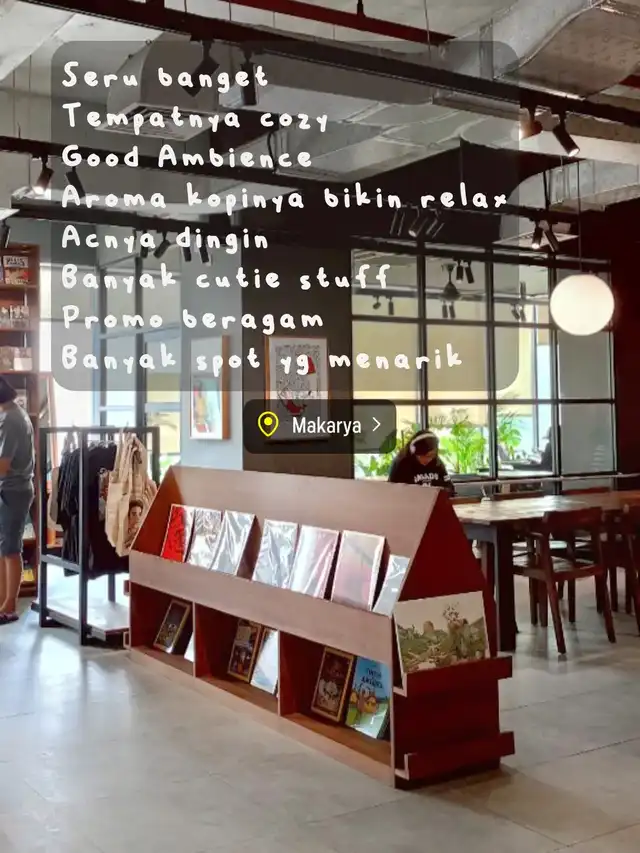 Seru banget
Tempatnya cozy
Good Ambience
Aroma kopinya bikin relax
Acnya dingin
Banyak cutie stuff
Promo beragam
Banyak spot yg menarik
Makarya